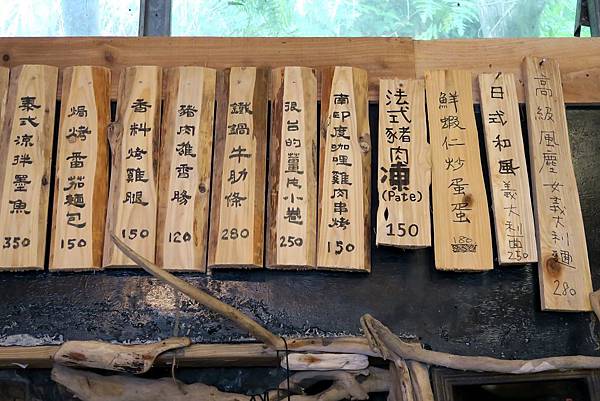 泰式涼拌墨魚
350
焗烤番茄麵包
150
香料烤雞腿
150
豬肉雞香腸
120
鐵鍋牛肋條
280
很台的薑片小卷
250
南印度咖哩雞肉串烤
150
法式豬肉凍
(Pate)
150
鮮蝦仁炒蛋蛋
180
日式和風義大利麵
250
高級風塵女義大利麵
280